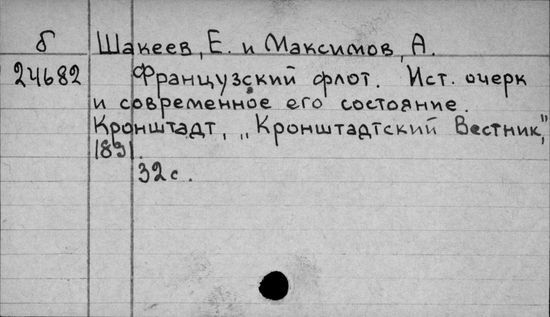 б Шакеев, Е. и Максимов, А.
24682 Французский флот. Ист. очерк
и современное его состояние.
Кронштадт, „Кронштадтский Вестник,"
1891.
32 с.